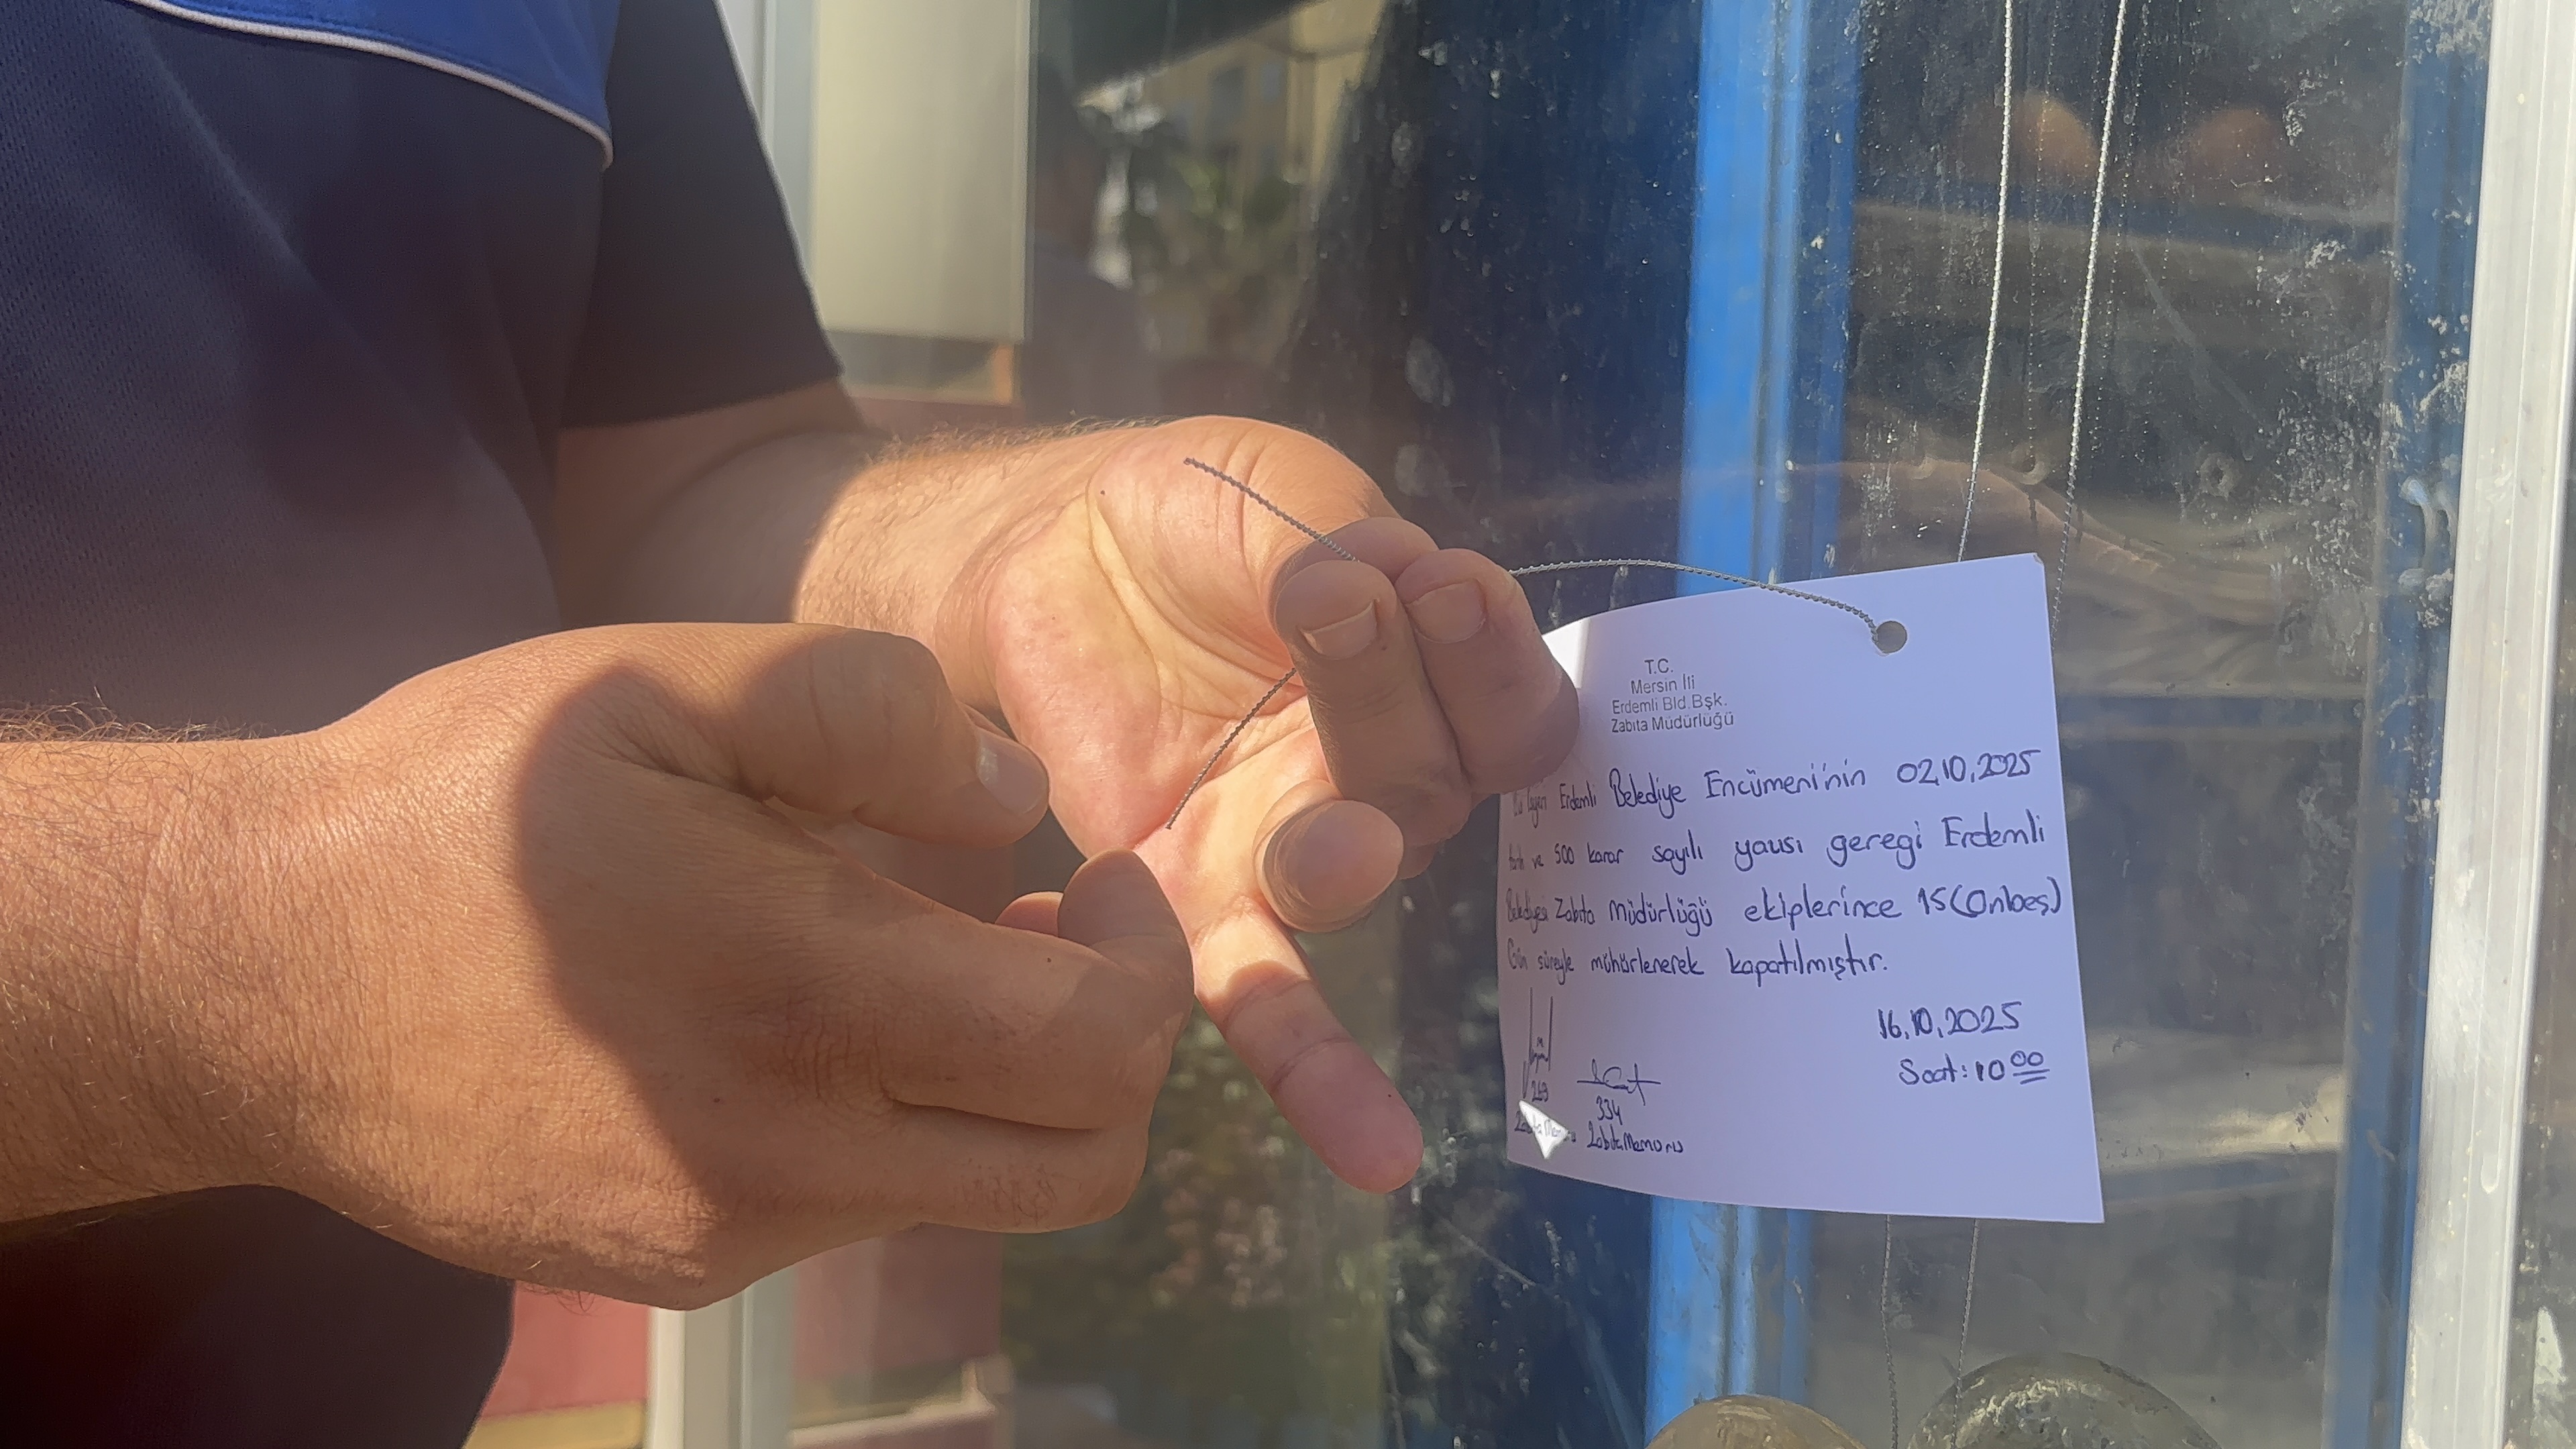 T.C.
Mersin İli
Erdemli Bld.Bşk.
Zabıta Müdürlüğü
Erdemli Belediye Encümeni'nin 02,10,2025
ve 500 karar sayılı yausı geregi Erdemli
Belediyesi Zabıta Müdürlüğü ekiplerince 15(Onbeş)
Gün süreyle mühürlenerek kapatılmıştır.
16,10,2025
Saat: 10 00
269
334
Zabıta Memuru Zabıta Memuru